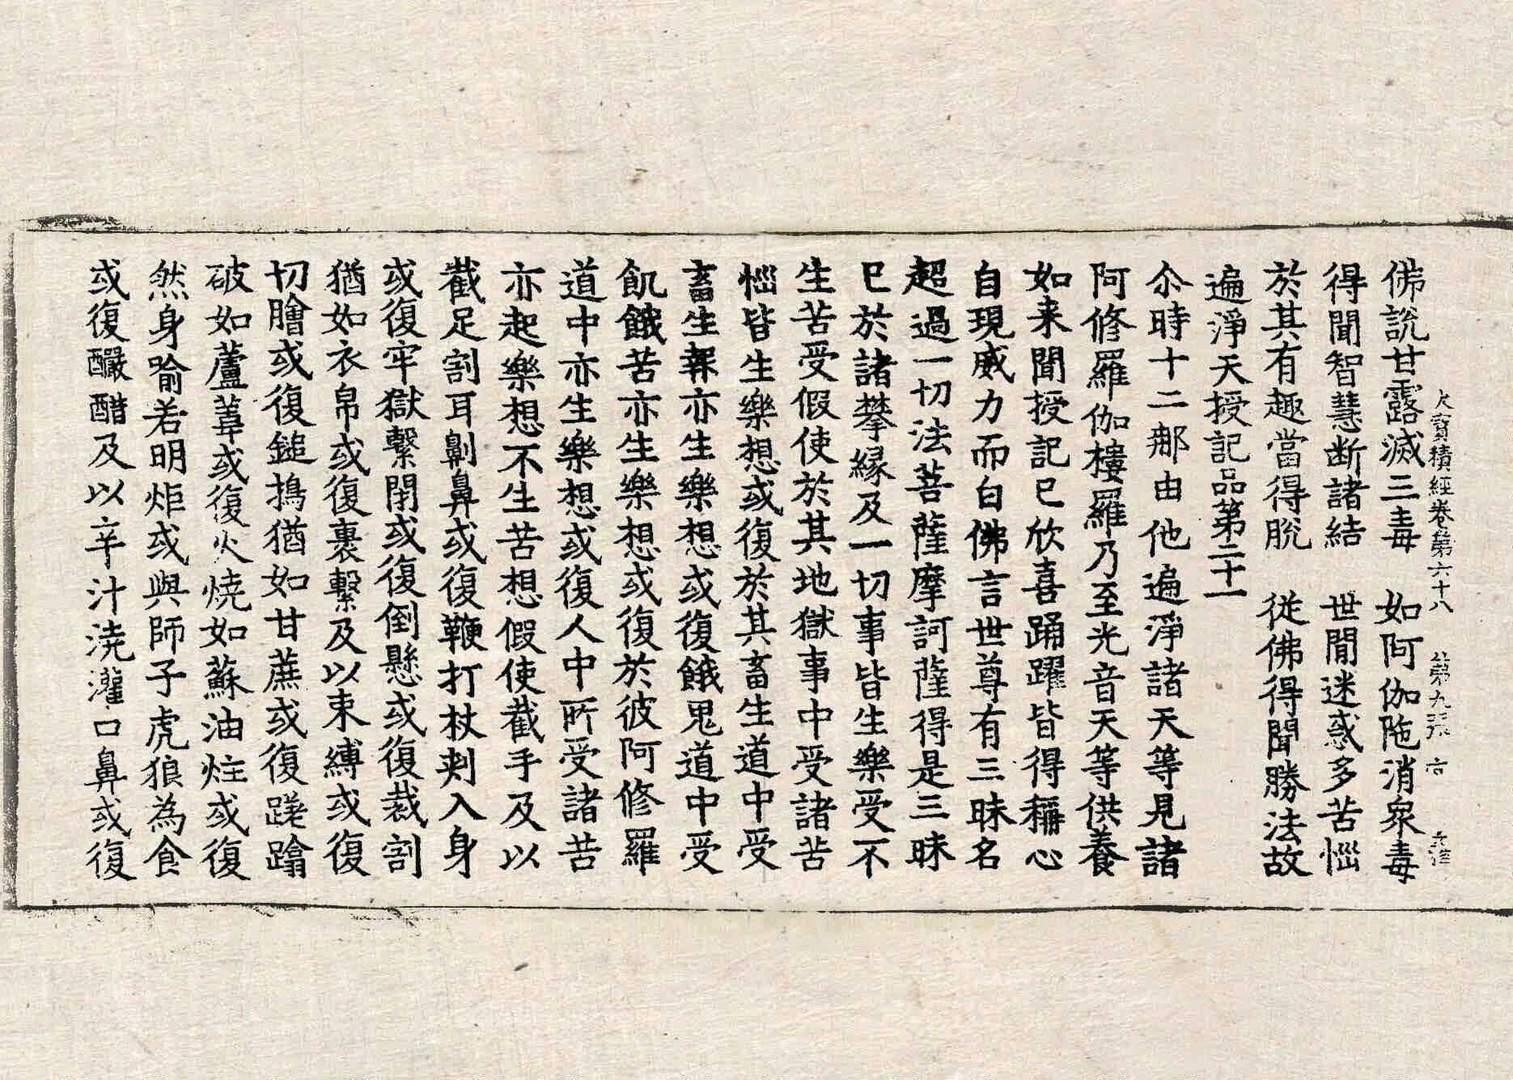 大寶積經卷第六十八 第九張 
佛說甘露滅三毒 如阿伽陁消衆毒
得聞智慧断諸結 世間迷惑多苦惱
於其有趣當得脫 從佛得聞勝法故
遍淨天授記品第二十一
尒時十二𨙻由他遍淨諸天等見諸
阿修羅伽樓羅乃至光音天等供養
如来聞授記已欣喜踊躍皆得稱心
自現威力而白佛言世尊有三昧名
超過一切法菩薩摩訶薩得是三昧
已於諸攀緣及一切事皆生樂受不
生苦受假使於其地獄事中受諸苦
惱皆生樂想或復於其畜生道中受
畜生報亦生樂想或復餓鬼道中受
飢餓苦亦生樂想或復於彼阿修羅
道中亦生樂想或復人中所受諸苦
亦起樂想不生苦想假使截手及以
截足割耳劓鼻或復鞭打杖刾入身
或復牢獄繫閉或復倒懸或復裁割
猶如衣帛或復裹繫及以束縛或復
切膾或復鎚擣猶如甘蔗或復蹉蹹
破如蘆葦或復火燒如蘇油炷或復
然身喻若明炬或與師子虎狼為食
或復釅醋及以辛汁澆灌口鼻或復